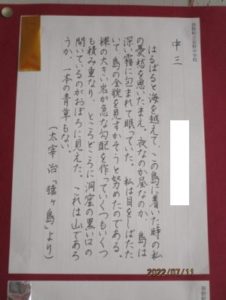 中三
はるばると海を越えて、この島に着いた時の私
の憂愁を思いたまえ。夜なのか昼なのか、島は
深い霧に包まれて眠っていた。私は目をしばたた
いて、島の全貌を見すかそうと努めたのである。
裸の大きい岩が急な勾配を作っていくつもいくつ
も積み重なり、ところどころに洞窟の黒い口の
開いているのがおぼろに見えた。これは山であろ
うか。一本の青草もない。
(太宰治「猿ヶ島」より)
2022/07/11